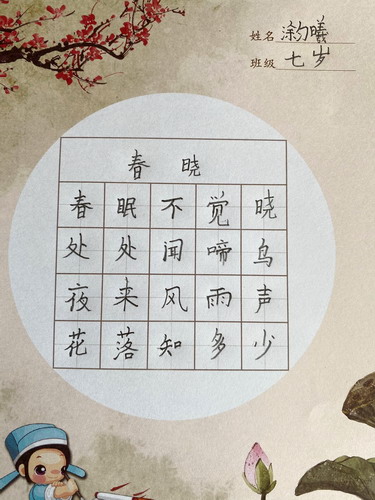 姓名 涂 曦
班级 七岁
春晓
春眠不觉晓
处处闻啼鸟
夜来风雨声
花落知多少